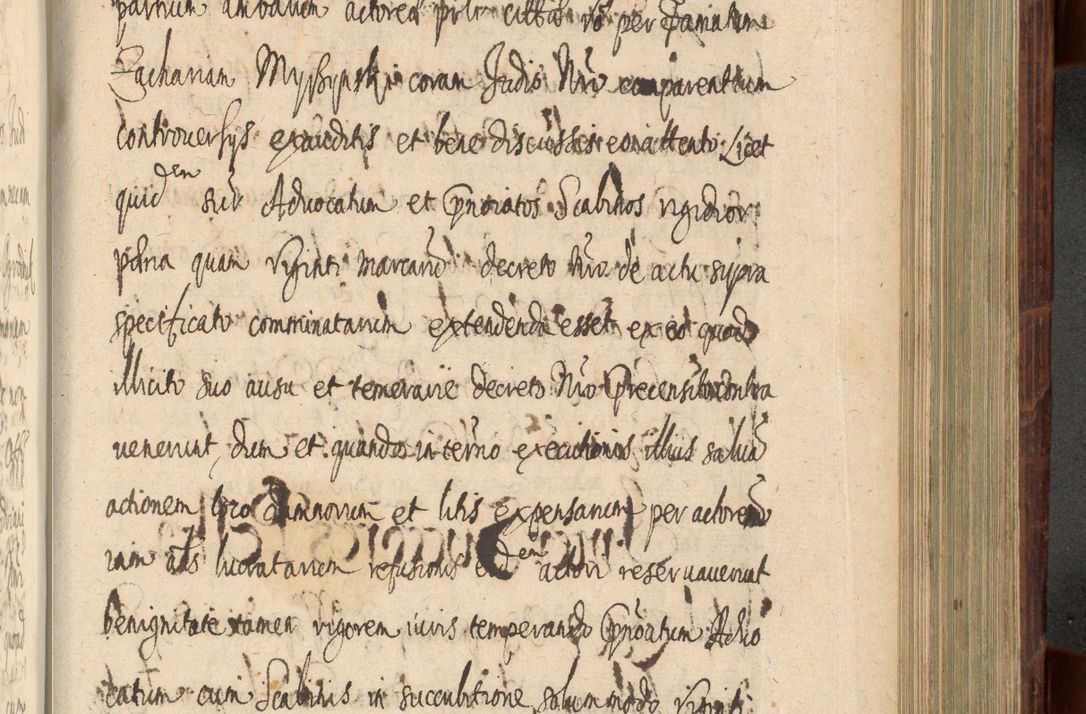 parnium ambarum actorea pro citta vo per Famatum
Zachariam Myszynski coram Judio Nro comparentium
controversijs exauditis et bene discussis eo attento Licet
quidem sur Advocatum et Cpnotatos Scabinos rigidior
poena quam viginti marcaru decreto Nro de actu supra
specificato comminatarum extendenda esset ex eo quod
illicito suo ausu et temerarie decreto Nro Precensito contra
venerunt, dum et quando in termo executionis illius salua
actionem loco damnorum et litis expensarum per actorea
iam als lucratarum refusionis eidem actori reservaverunt
benignitate tamen rigorem iuris temperando Cpnoatum Advo
catum cum Scabinis in succubitione solummodo viginti